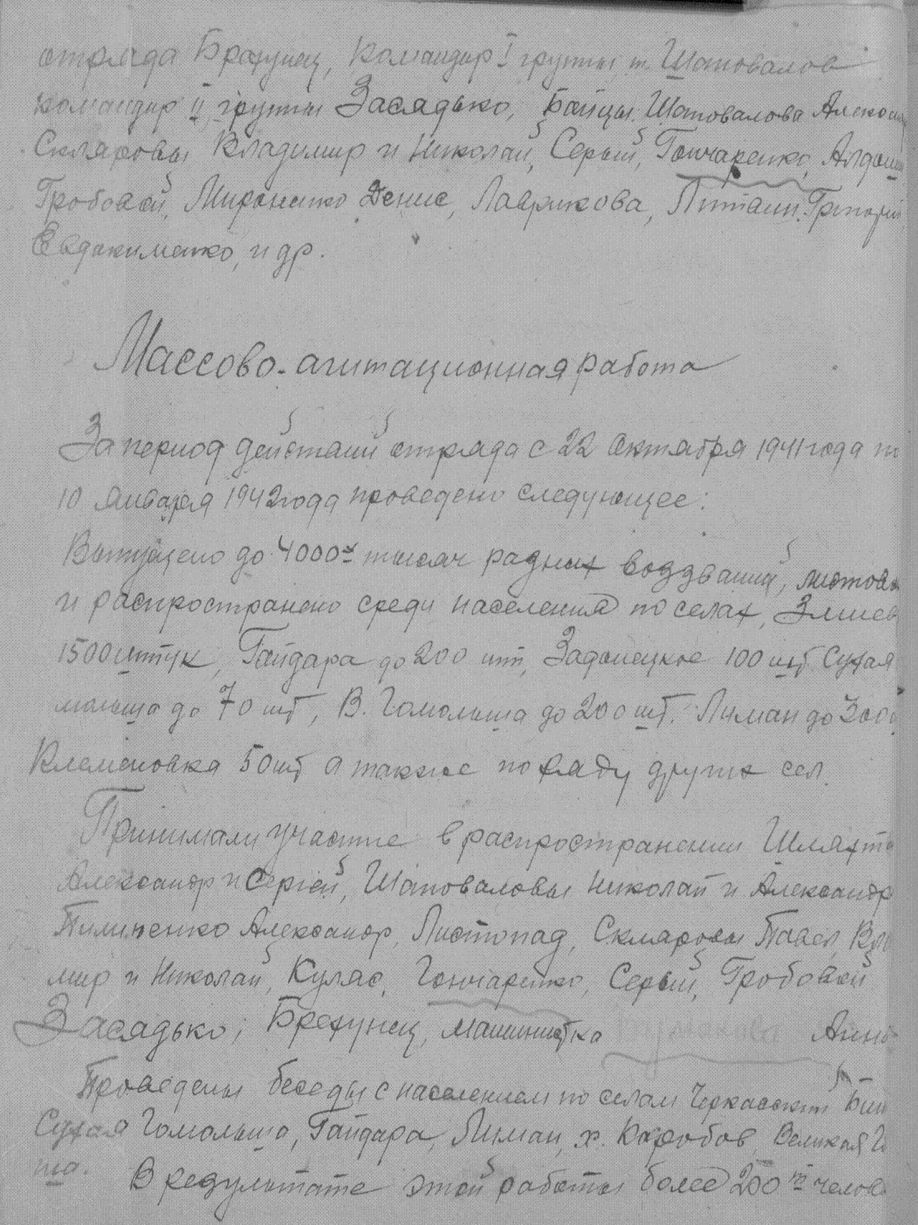 отряда Брехунец, Командир I группы т. Шаповалов
командир II группы Засядько, Бойцы Шаповалова
Скляровы Владимир и Николай, Серый, Гончаренко,
Гробовой, Мироненко Денис, Лаврикова, Питаин. Григорий
Евдокименко, и др.
Массово-агитационная работа
За период действий отряда с 22 октября 1941 года по
10 января 1942 года проведено следующее:
Выпущено до 4000х тысяч разных воззваний, листовок
и распространено среди населения по селах, Змиев
1500 штук, Гайдара до 200 шт, Задонецкое 100 шт Сухая
мольша до 70 шт, В. Гомольша до 200 шт. Лиман до 300
Клеменовка 50 шт а также по ряду других сел.
Принимали участие в распространении
Александр и Сергей, Шаповаловы Николай и Александр
Пилипенко Александр, Листопад, Скляровы Павел, Вла
мир и Николай, Куляс, Гончаренко, Серый, Гробовой
Засядько, Брехунец, машинистка Анна
Проведены беседы с населением по селам Черкасский
Сухая Гомольша, Гайдара, Лиман, х. Коробов, Великая Го
ша. В результате этой работы более 200 челов